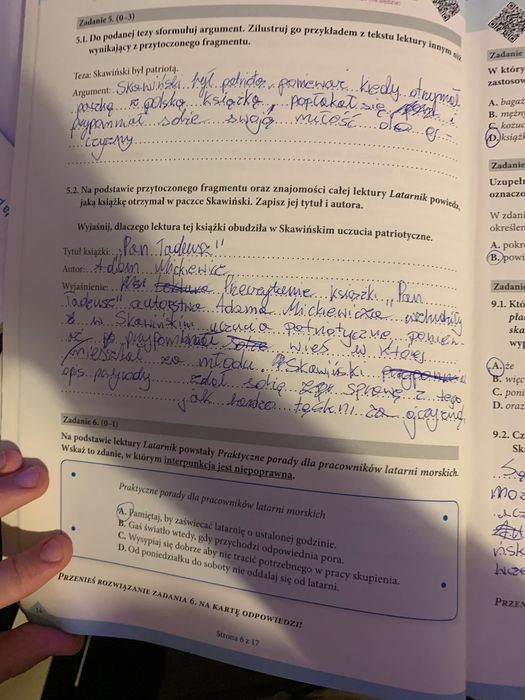 Zadanie 5. (0–3)
5.1. Do podanej tezy sformułuj argument. Zilustruj go przykładem z tekstu lektury innym niż
wynikający z przytoczonego fragmentu.
Teza: Skawiński był patriotą.
Argument: Skawiński był patriotą, ponieważ kiedy otrzymał
paczkę z polską książką, popłakał się i
przypomniał sobie swoją miłość do oj-
czyzny
5.2. Na podstawie przytoczonego fragmentu oraz znajomości całej lektury Latarnik powiedz,
jaką książkę otrzymał w paczce Skawiński. Zapisz jej tytuł i autora.
Wyjaśnij, dlaczego lektura tej książki obudziła w Skawińskim uczucia patriotyczne.
Tytuł książki: „Pan Tadeusz"
Autor: Adam Mickiewicz
Wyjaśnienie: Przeczytanie książki „Pan
Tadeusz" autorstwa Adama Mickiewicza wzbudziły
w Skawińskim uczucia patriotyczne, poniew-
aż przypomniał wieś w której
mieszkał za młodu. Skawiński
opis przyrody zdał sobie sprawę z tego
jak bardzo tęskni za ojczyzną.
Zadanie 6. (0–1)
Na podstawie lektury Latarnik powstały Praktyczne porady dla pracowników latarni morskich.
Wskaż to zdanie, w którym interpunkcja jest niepoprawna.
Praktyczne porady dla pracowników latarni morskich
A. Pamiętaj, by zaświecać latarnię o ustalonej godzinie.
B. Gaś światło wtedy, gdy przychodzi odpowiednia pora.
C. Wysypiaj się dobrze aby nie tracić potrzebnego w pracy skupienia.
D. Od poniedziałku do soboty nie oddalaj się od latarni.
PRZENIEŚ ROZWIĄZANIE ZADANIA 6. NA KARTĘ ODPOWIEDZI!
Strona 6 z 17
Zadanie
W który
zastosow
A. bagaż
B. mężny
D. książk
Zadanie
Uzupełn
oznaczo
W zdani
określen
A. pokre
B. powi
Zadanie
9.1. Któ
A. że
B. więc
C. poni
D. oraz
9.2. Cz